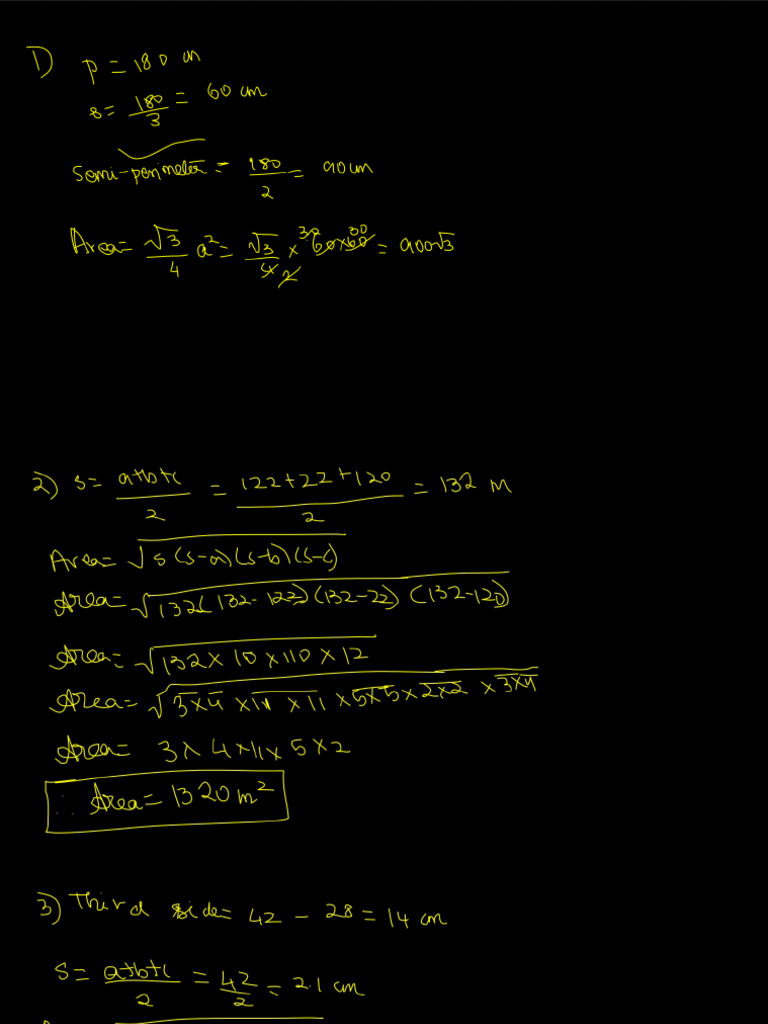 1) P = 180 cm
s = 180/3 = 60 cm
Semi-perimeter = 180/2 = 90 cm
Area = √3/4 a² = √3/4 2 × 30 60×60 30 = 900√3
2) s = a+b+c/2 = 122+22+120/2 = 132 m
Area = √s(s-a)(s-b)(s-c)
Area = √132(132-122)(132-22)(132-120)
Area = √132×10×110×12
Area = √3×4×11×11×5×5×2×2×3×4
Area = 3×4×11×5×2
∴ Area = 1320 m²
3) Third side = 42 - 28 = 14 cm
s = a+b+c/2 = 42/2 = 21 cm